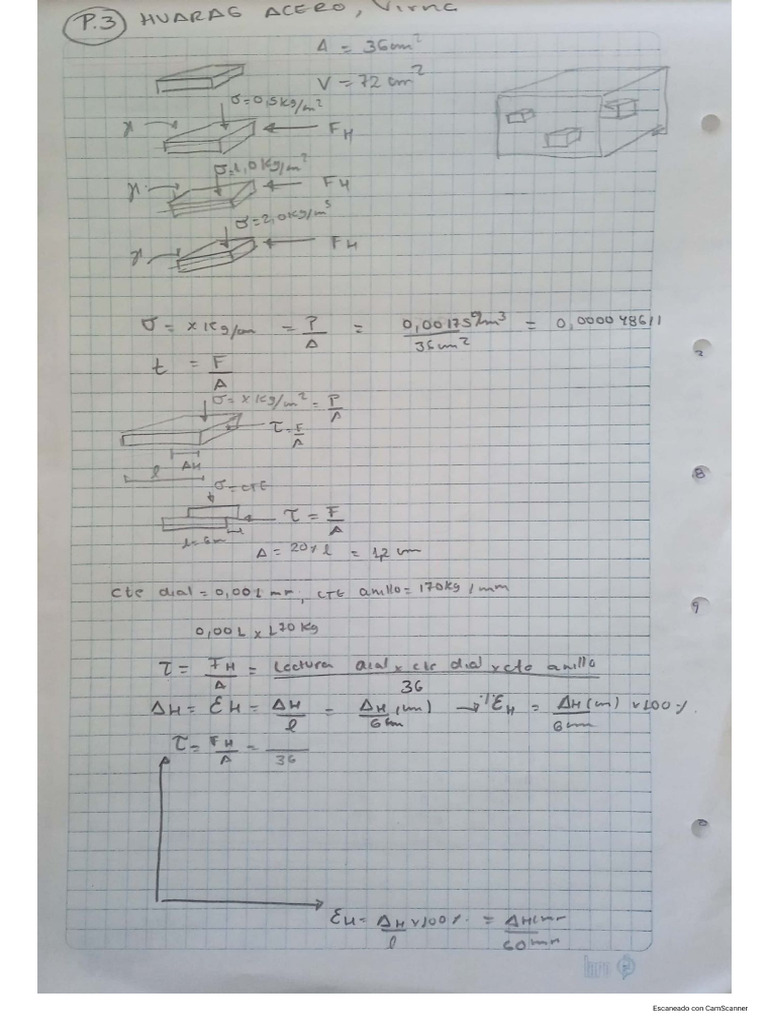 P.3 HUARAG ACERO, Virna
A = 36cm²
V = 72 cm²
σ=0,5kg/m²
γ FH
σ=1,0kg/m²
γ. FH
σ=2,0kg/m³
γ FH
σ = x kg/cm = P/A = 0,00175 /36cm² = 0,000048611
t = F/A
σ= x kg/m² = P/A
τ = F/A
ΔH
l
σ=CTE
τ = F/A
l=6m
Δ = 20% l = 1,2 cm
cte dial = 0,001 mm, CTE anillo= 170kg / mm
0,001 x 170 kg
τ = FH/A = Lectura dial x cte dial x cte anillo/36
ΔH = ƐH = ΔH/l = ΔH(m)/6cm → % ƐH = ΔH(m)/6cm x100%.
τ = FH/A = /36
ƐH= ΔH x100%/l = ΔH(mm/60mm
Escaneado con CamScanner